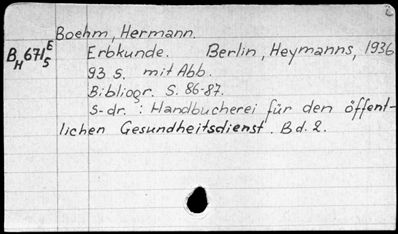 Boehm, Hermann.
BH671E5 Erbkunde. Berlin, Heymanns, 1936
93 S. mit Abb.
Bibliogr. S. 86-87.
S-dr.: Handbücherei für den öffent-
lichen Gesundheitsdienst. Bd. 2.